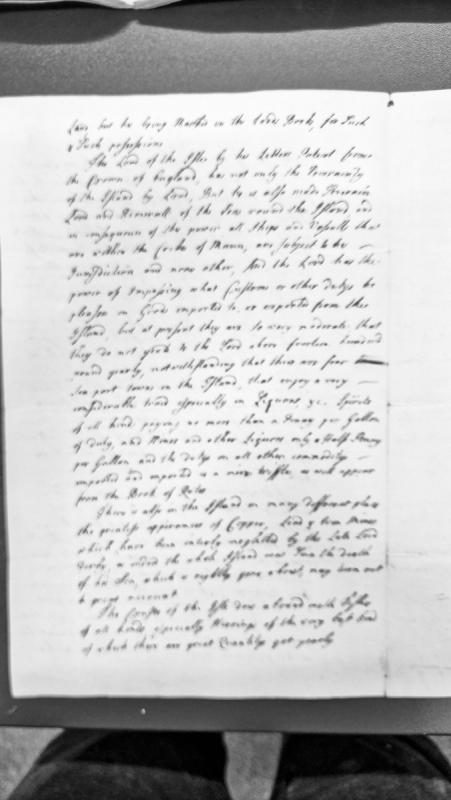 Law but he being Master in the Lords Book, for Such
& Such possessions
The Lord of the Isles by his Letters Patent from
the Crown of England, has not only the Sovereignty
of the Island by Land, But he is also made Sovereign
Lord and Admirall of the Sea round the Island and
in consequence of the power all Ships and Vessells that
are within the of Mann, are Subject to his
Jurisdiction and none other, And the Lord has the
power of Impossing what Customs or other dutys he
pleases on Goods imported to, or exported from the
Island, but at present they are so very moderate that
they do not yield to the Lord above fourteen hundred
pound yearly, notwithstanding that there are four
Sea port towns in the Island, that enjoy a very
considerable trade especially in Liquors, &c. Spirits
of all kinds paying no more than a Penny per Gallon
of duty, and Wines and other Liquors only a Half Penny
per Gallon and the dutys on all other commoditys
imported and exported a mere triffle, as will appear
from the Book of Rates
There is also in the Island in many different places
the greatest appearances of Copper, Lead & Iron Mines
which have been intirely neglected by the Late Lord
Derby, as indeed the whole Island was Since the death
of his Son, which if rightly gone about, may turn out
to great account
The of the Isle does abound with Fishes
of all kinds, especially Herrings of the very best kind
of which there are great Quantitys got yearly